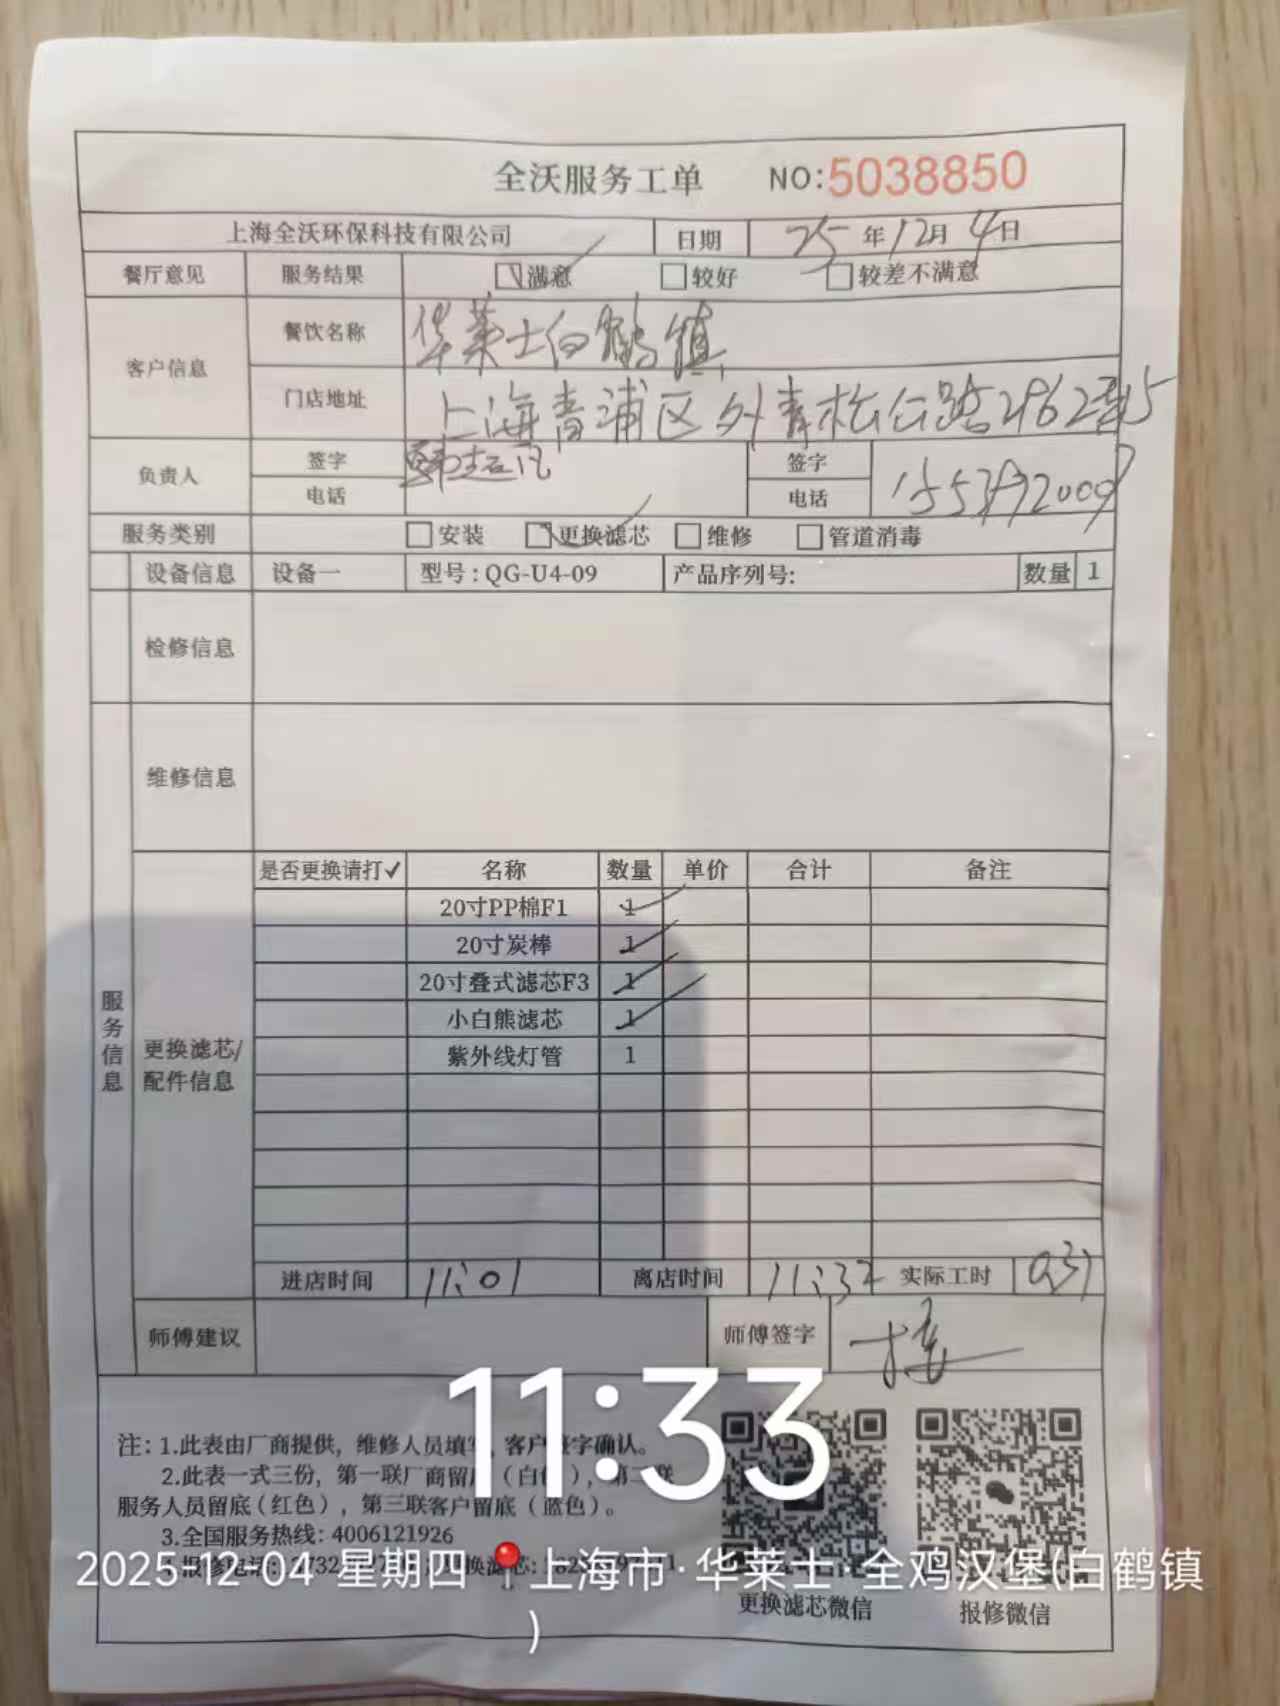 全沃服务工单 NO:5038850
上海全沃环保科技有限公司 日期 25年12月4日
餐厅意见 服务结果 满意 较好 较差不满意
客户信息 餐饮名称 华莱士白鹤镇
门店地址 上海青浦区外青松公路2962号15
负责人 签字 签字
电话 电话
服务类别 安装 更换滤芯 维修 管道消毒
设备信息 设备一 型号:QG-U4-09 产品序列号: 数量 1
检修信息
维修信息
服务信息
更换滤芯/
配件信息
是否更换请打✓ 名称 数量 单价 合计 备注
20寸PP棉F1 1
20寸炭棒 1
20寸叠式滤芯F3 1
小白熊滤芯 1
紫外线灯管 1
进店时间 11:01 离店时间 11:32 实际工时
师傅建议 师傅签字
11:33
注:1.此表由厂商提供,维修人员填写,客户签字确认。
2.此表一式三份,第一联厂商留底(白色),第二联
服务人员留底(红色),第三联客户留底(蓝色)。
3.全国服务热线:4006121926
2025-12-04 星期四 📍上海市·华莱士·全鸡汉堡(白鹤镇
)
更换滤芯微信 报修微信